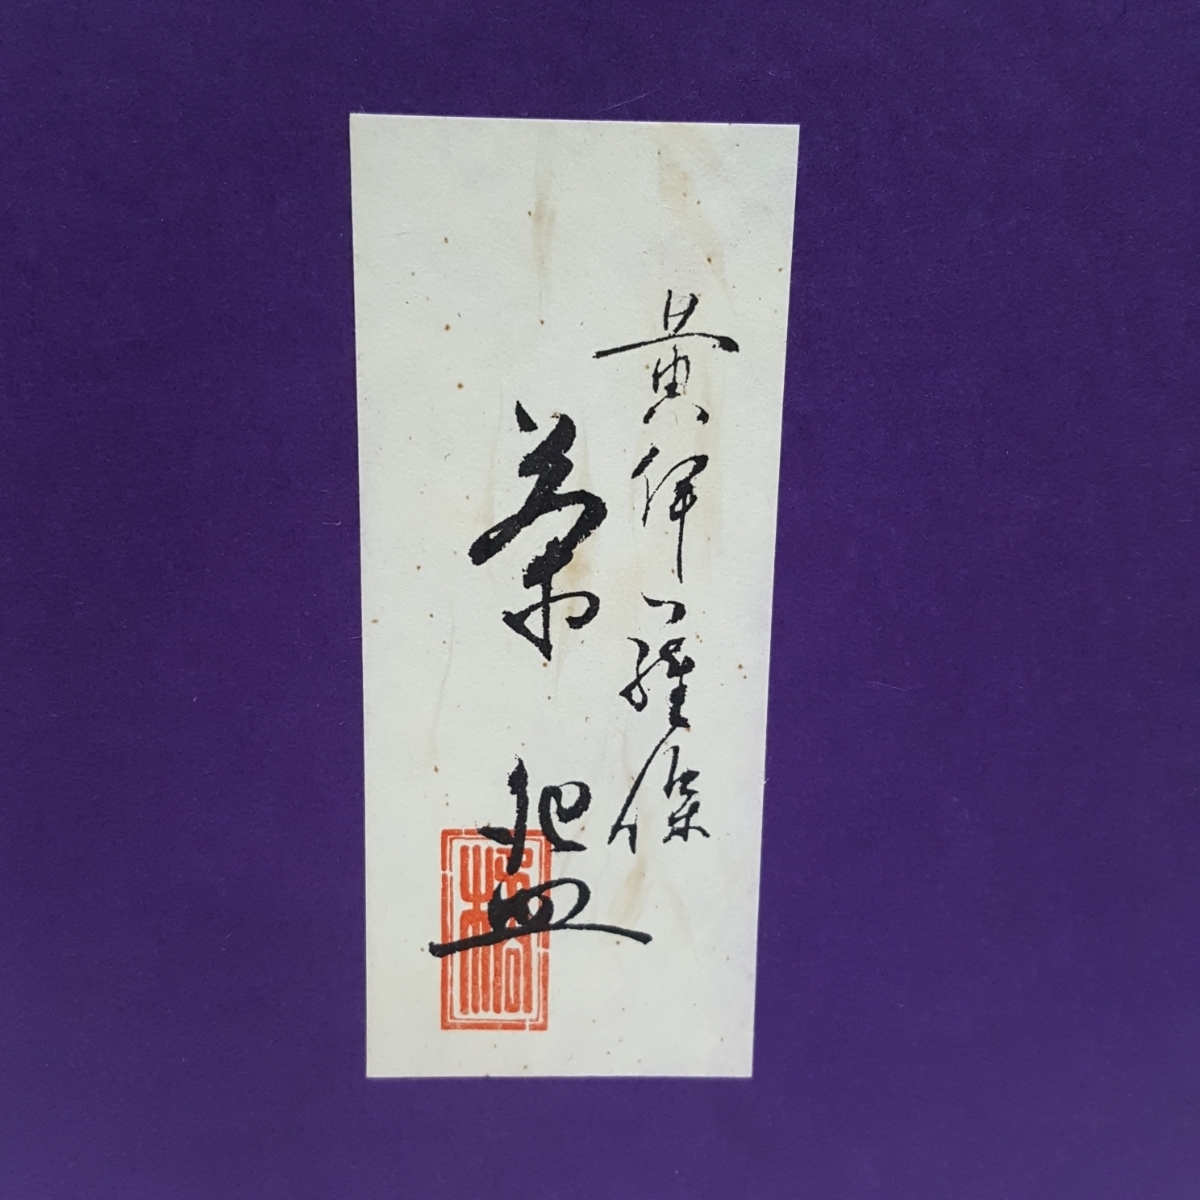 黄伊羅保
茶盌
橘